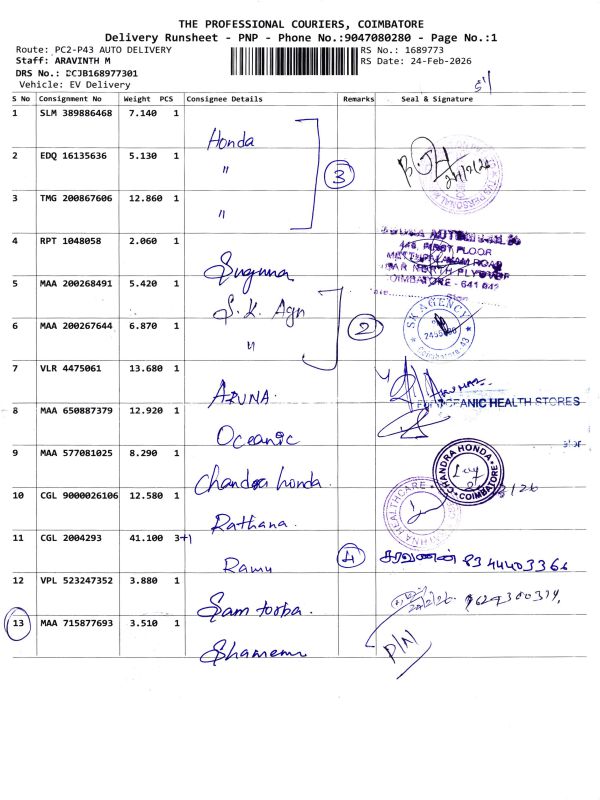 THE PROFESSIONAL COURIERS, COIMBATORE
Delivery Runsheet - PNP - Phone No.:9047080280 - Page No.:1
Route: PC2-P43 AUTO DELIVERY
RS No.: 1689773
Staff: ARAVINTH M
RS Date: 24-Feb-2026
DRS No.: DCJB168977301
Vehicle: EV Delivery
S No Consignment No Weight PCS Consignee Details Remarks Seal & Signature
1 SLM 389886468 7.140 1 Honda
2 EDQ 16135636 5.130 1 "
3
3 TMG 200867606 12.860 1 "
4 RPT 1048058 2.060 1 Suguna
FIRST FLOOR
5 MAA 200268491 5.420 1 S.K. Agn
6 MAA 200267644 6.870 1 "
2
SK AGENCY
Coimbatore-43
7 VLR 4475061 13.680 1 ARUNA
8 MAA 650887379 12.920 1 Oceanic
OCEANIC HEALTH STORES
9 MAA 577081025 8.290 1 Chandra honda
CHANDRA HONDA
COIMBATORE
10 CGL 9000026106 12.580 1 Rathana
11 CGL 2004293 41.100 3+1 Ramu
4 சரவணன் 8344403366
12 VPL 523247352 3.880 1
13 MAA 715877693 3.510 1
P/N